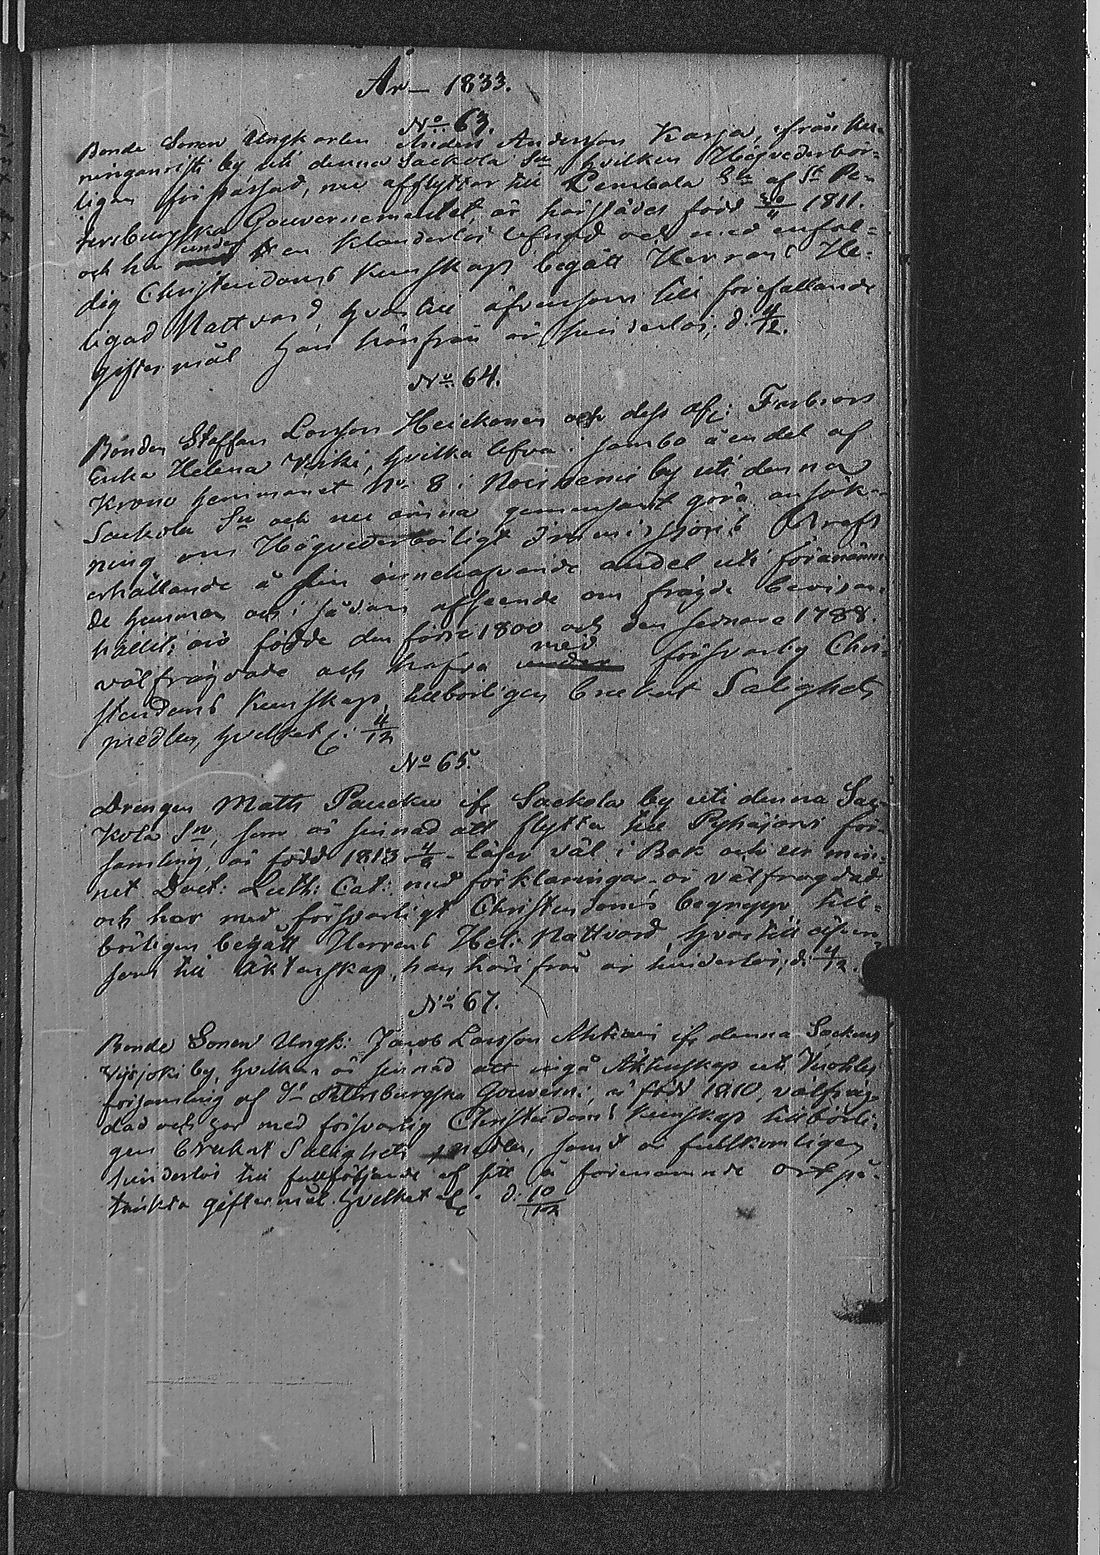 År 1833.
No 63.
Bonde Sonen Ungkarlen Anders Andersson Karja, ifrån
by uti denna Sackola Sn hvilken Högvederbör-
ligen förpassad, nu afflyttar till Lembala Sn af St Pe-
tersburgska Gouvernementet är härstädes född 30/11 1811.
och har under en klanderlös lefnad och med enfal-
dig Christendoms Kunskap begått Herrans He-
liga Nattvard, hvartill äfvensom till förefallande
giftermål han härifrån är hinderlös; d. 4/12.
No 64.
Bonden Staffan Larsson Heickonen och dess afl: Farbrors
Enka Helena Kirki, hvilka lefva i sambo å en del af
Krono hemmanet No 8 i by uti denna
Sackola Sn och nu ärna gemensamt göra ansök-
ning om Högvederbörligt dimissions
erhållande å sin innehafvande andel uti förenämn-
de hemman och i sådant afseende om frägde bevis an-
hållit; äro födde den förre 1800 och den sednare 1788.
välfrägdade och hafva med försvarlig Chri-
stendoms Kunskap, tillbörligen brukat Salighets
medlen, hvilket &. 4/12
No 65.
Drengen Matts Paucku if Sackola by uti denna Sac-
kola Sn, som är sinnad att flytta till Pyhäjärvi för-
samling, är född 1813 4/8 läser väl i Bok och ur min-
net Doct: Luth: Cat: med förklaringar är välfrägdad
och har med försvarligt Christendoms begrepp till-
börligen begått Herrans Hel: Nattvard, hvartill äfven
som till Äktenskap, han härifrå är hinderlös; d. 4/12.
No 67.
Bonde Sonen Ungk: Jacob Larsson Ahtiain if denna Sockens
by, hvilken är sinnad att ingå Äktenskap uti
församling af St Petersburgska Gouvern:, är född 1810, välfräg-
dad och har med försvarlig Christendoms Kunskap tillbörli-
gen brukat Salighets medlen, samt är fullkomligen
hinderlös till fullföljande af sitt å förenämnde ort på-
tänkta giftermål hvilket &c d. 10/12